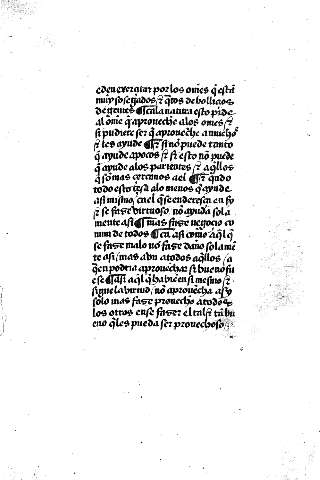 eden exercitar por los om̃es q̃ están
muy sosegados / ⁊ q̃tos de bolliçios
de gentes ¶ Ca la natura esto pide
al om̃e q̃ aproueche a los om̃es / ⁊
si pudiere ser q̃ aproueche a muchos
⁊ les ayude ¶ ⁊ si nõ puede tanto
q̃ ayude a pocos ⁊ si esto nõ puede
q̃ ayude a los parientes / ⁊ aq̃llos
q̃ son mas çercanos a el ¶ ⁊ q̃ndo
todo esto çesa al menos q̃ ayude
asi mismo / ca el q̃ se endereça en sy
⁊ se faze virtuoso nõ ayuda sola
mente asi ¶ mas faze negoçio co
mun de todos ¶ Ca asi como aq̃l q̃
se faze malo nõ faze daño sola mẽ
te asi / mas avn a todos aq̃llos / a
q̃en podria aprouechar si bueno fu
ese ¶ asi aq̃l q̃ ha biẽ en si mesmo / ⁊
sigue la birtud / nõ aprouecha a sy
solo mas faze prouecho a todos
los otros en se fazer el tal / ⁊ tã bu
eno q̃ les pueda ser prouechoso